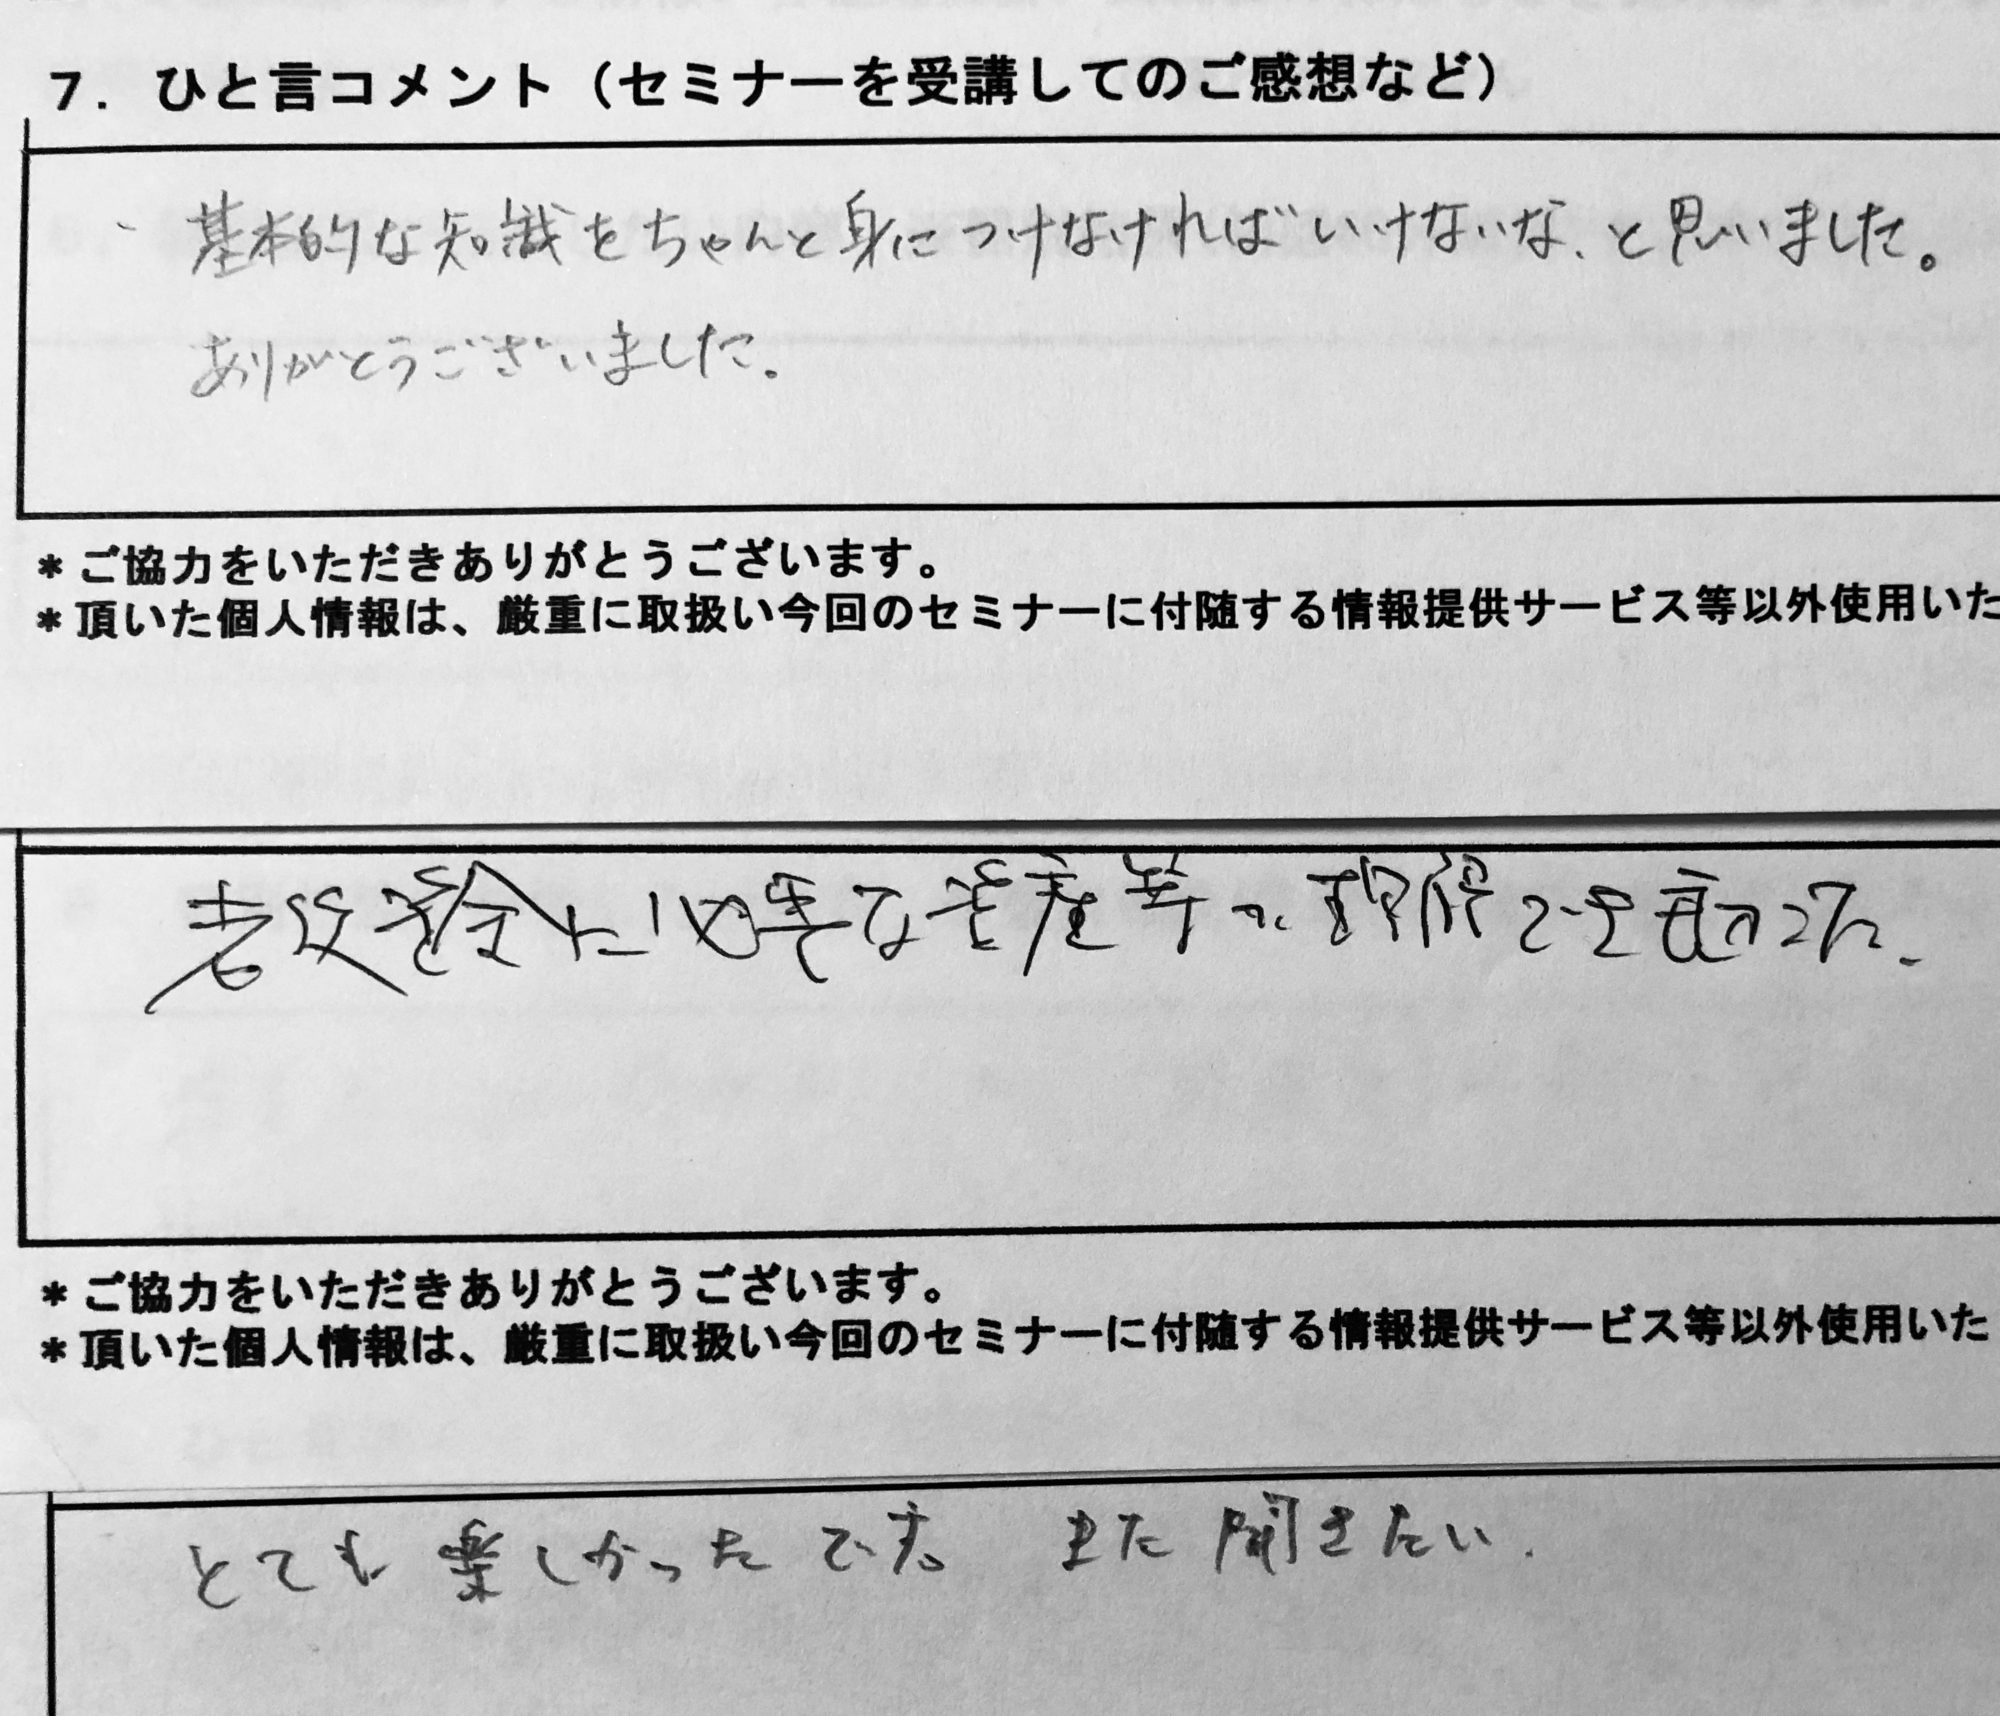 7. ひと言コメント（セミナーを受講してのご感想など）
基本的な知識をちゃんと身につけなければいけないな、と思いました。
ありがとうございました。
＊ご協力をいただきありがとうございます。
＊頂いた個人情報は、厳重に取扱い今回のセミナーに付随する情報提供サービス等以外使用いた
老後資金に必要な資産等が理解でき良かった。
＊ご協力をいただきありがとうございます。
＊頂いた個人情報は、厳重に取扱い今回のセミナーに付随する情報提供サービス等以外使用いた
とても楽しかったです。また聞きたい.